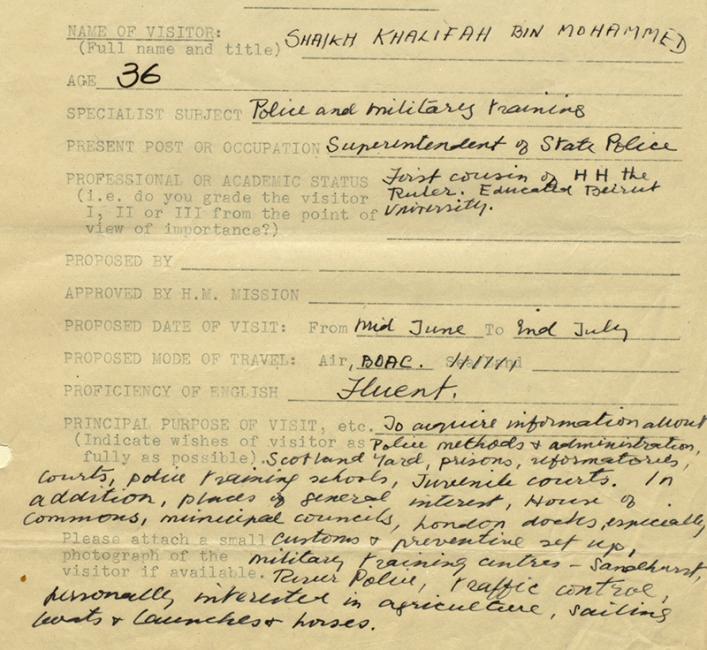 NAME OF VISITOR: SHAIKH KHALIFAH BIN MOHAMMED
(Full name and title)
AGE 36
SPECIALIST SUBJECT Police and military training
PRESENT POST OR OCCUPATION Superintendent of State Police
PROFESSIONAL OR ACADEMIC STATUS First cousin of HH the
(i.e. do you grade the visitor Ruler. Educated Beirut
I, II or III from the point of University.
view of importance?)
PROPOSED BY
APPROVED BY H.M. MISSION
PROPOSED DATE OF VISIT: From Mid June To End July
PROPOSED MODE OF TRAVEL: Air, BOAC.
PROFICIENCY OF ENGLISH Fluent.
PRINCIPAL PURPOSE OF VISIT, etc. To acquire information about
(Indicate wishes of visitor as Police methods & administration,
fully as possible). Scotland Yard, prisons, reformatories,
courts, police training schools, Juvenile courts. In
addition, places of general interest, House of
Commons, municipal councils, London docks, especially
Please attach a small customs & preventive set up,
photograph of the military training centres - Sandhurst,
visitor if available. River Police, traffic control,
personally interested in agriculture, sailing
boats & launches & horses.